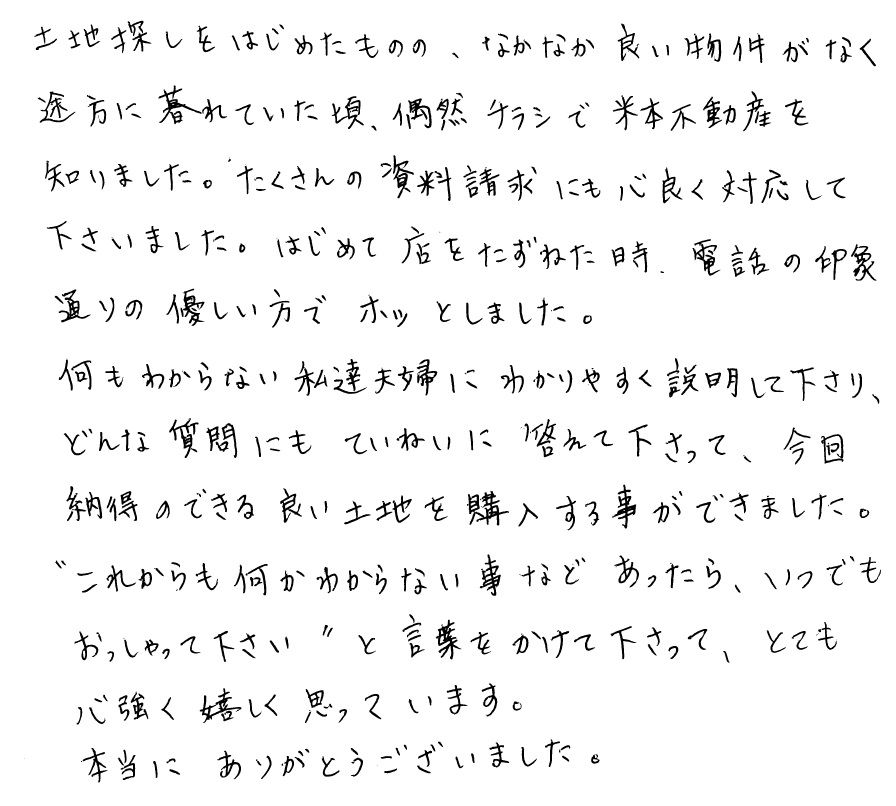 土地探しをはじめたものの、なかなか良い物件がなく
途方に暮れていた頃、偶然チラシで米本不動産を
知りました。たくさんの資料請求にも心良く対応して
下さいました。はじめて店をたずねた時、電話の印象
通りの優しい方でホッとしました。
何もわからない私達夫婦にわかりやすく説明して下さり、
どんな質問にもていねいに答えて下さって、今回
納得のできる良い土地を購入する事ができました。
〝これからも何かわからない事などあったら、いつでも
おっしゃって下さい〟と言葉をかけて下さって、とても
心強く嬉しく思っています。
本当にありがとうございました。